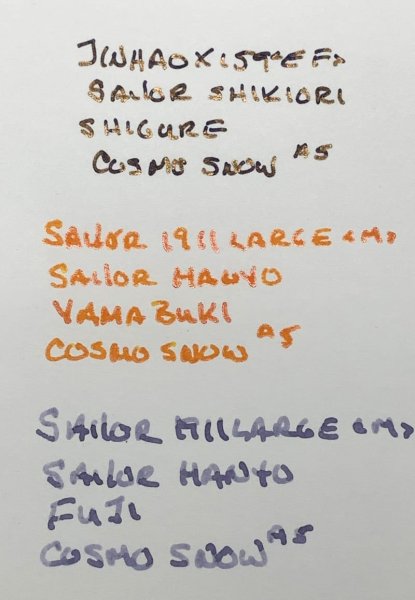 JINHAO X159 <EF>
SAILOR SHIKIORI
SHIGURE
COSMO SNOW A5
SAILOR 1911 LARGE <M>
SAILOR MANYO
YAMABUKI
COSMO SNOW A5
SAILOR 1911 LARGE <M>
SAILOR MANYO
FUJI
COSMO SNOW A5